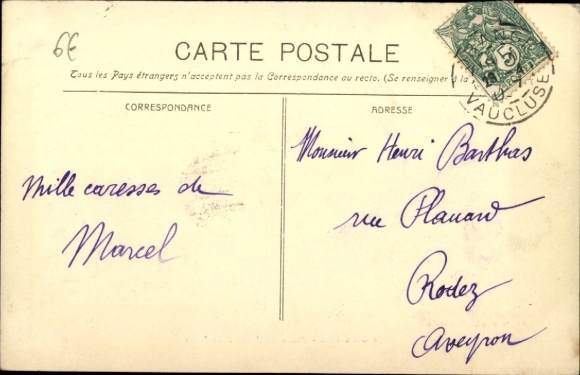 6€
CARTE POSTALE
Tous les Pays étrangers n'acceptent pas la Correspondance au recto. (Se renseigner à la
CORRESPONDANCE
ADRESSE
Mille caresses de
Marcel
Monsieur Henri Barthas
rue Planard
Rodez
Aveyron
5
VAUCLUSE